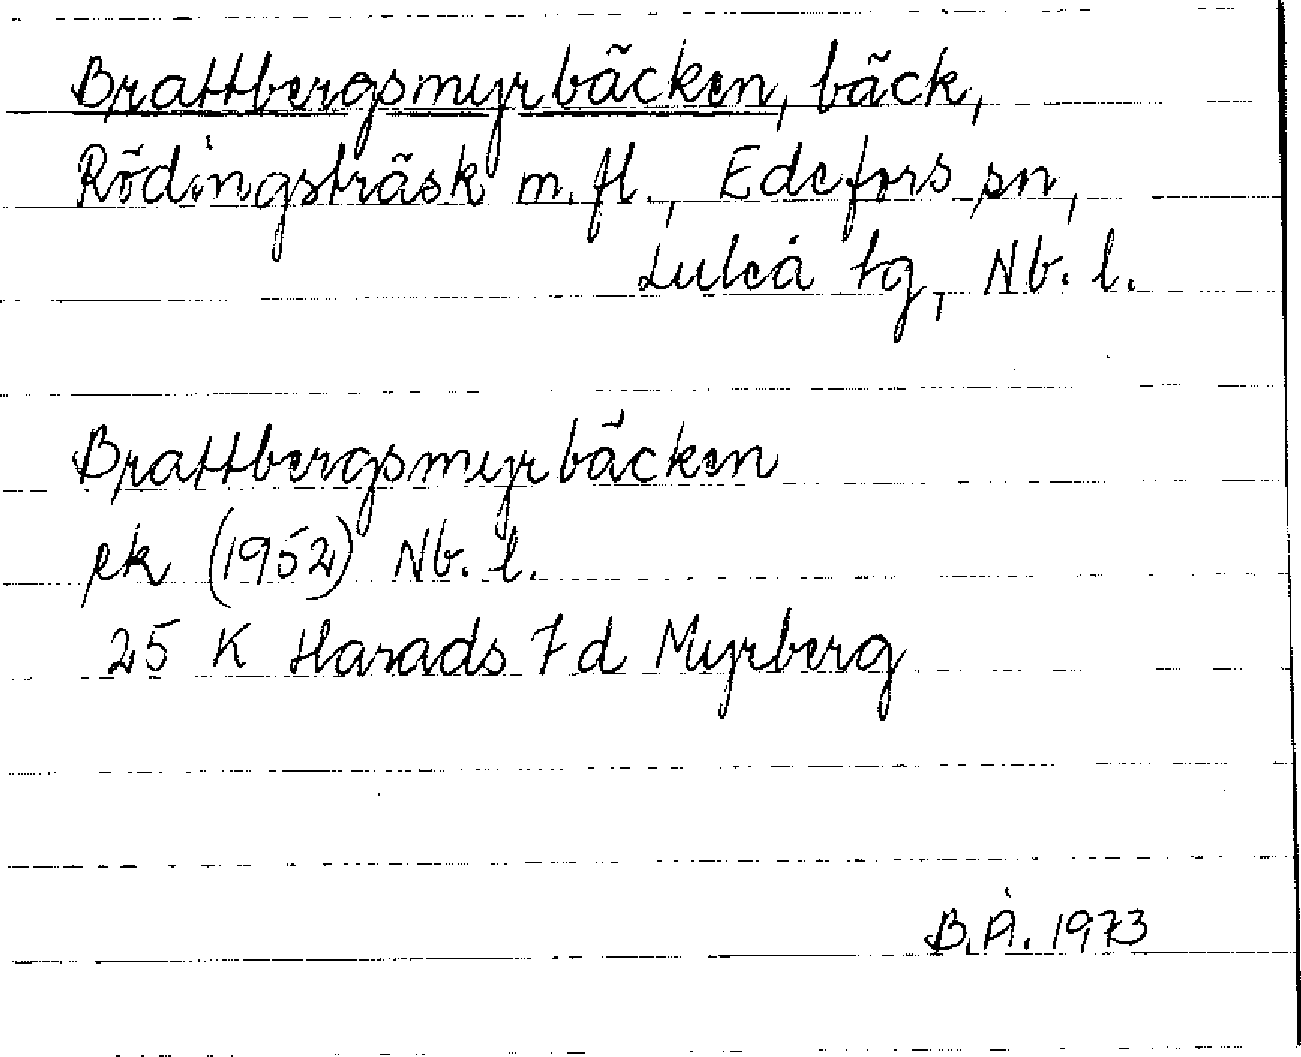 Brattbergsmyrbäcken, bäck,
Rödingsträsk m.fl., Edefors sn,
Luleå tg, Nb. l.
Brattbergsmyrbäcken
ek (1952) Nb. l.
25 K Harads 7 d Myrberg
B.Å. 1973